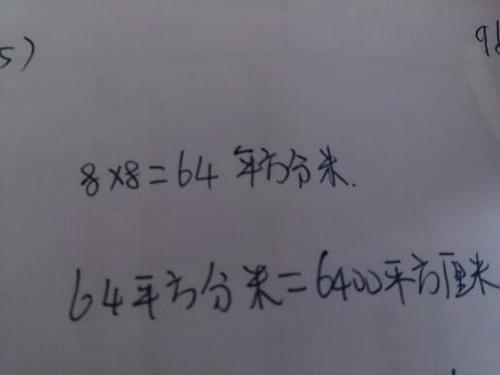 5)
8×8=64平方分米.
64平方分米=6400平方厘米